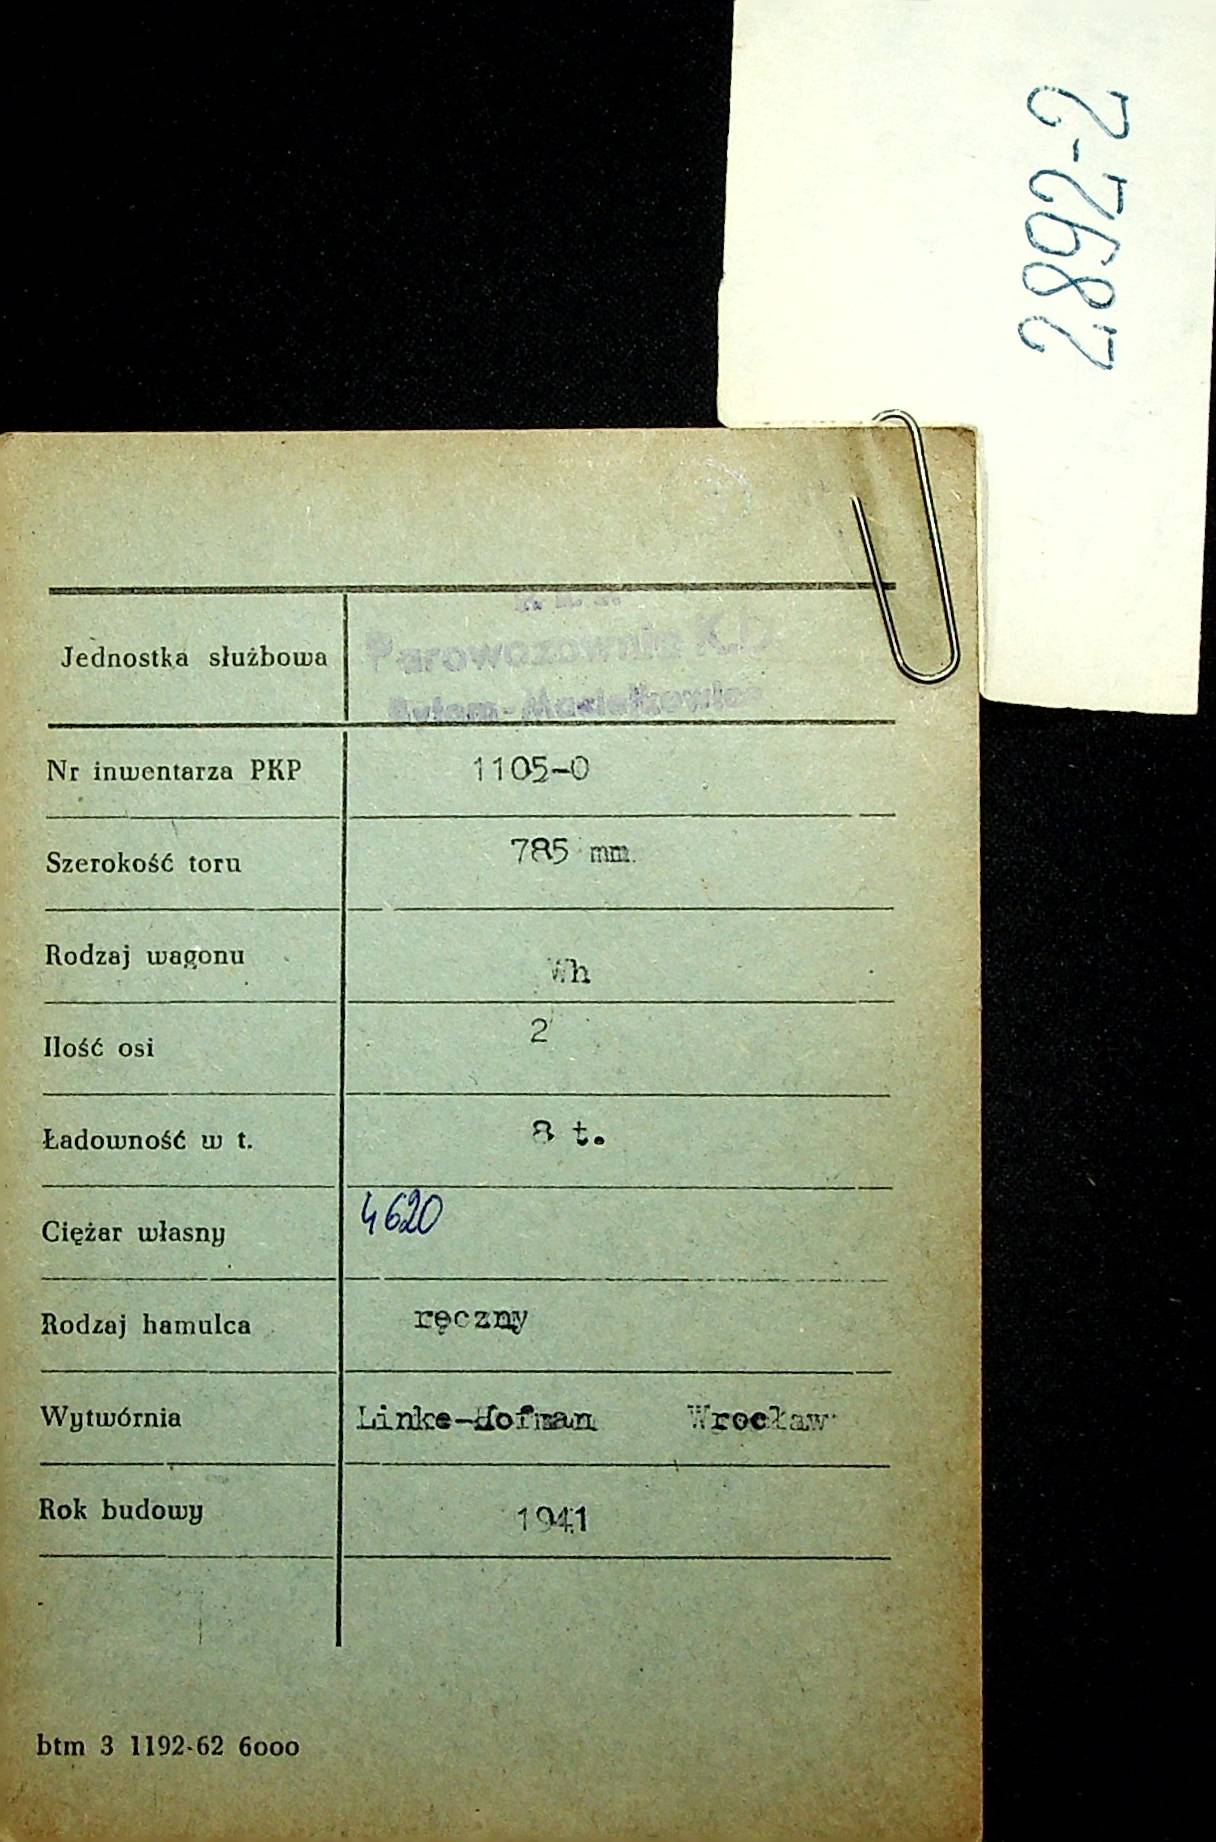 2892-2
Jednostka służbowa
Parowozownia K.D.
Nr inwentarza PKP 1105-0
Szerokość toru 785 mm.
Rodzaj wagonu Wh
Ilość osi 2
Ładowność w t. 8 t.
Ciężar własny 4620
Rodzaj hamulca ręczny
Wytwórnia Linke-Hofman Wrocław
Rok budowy 1941
btm 3 1192-62 6000